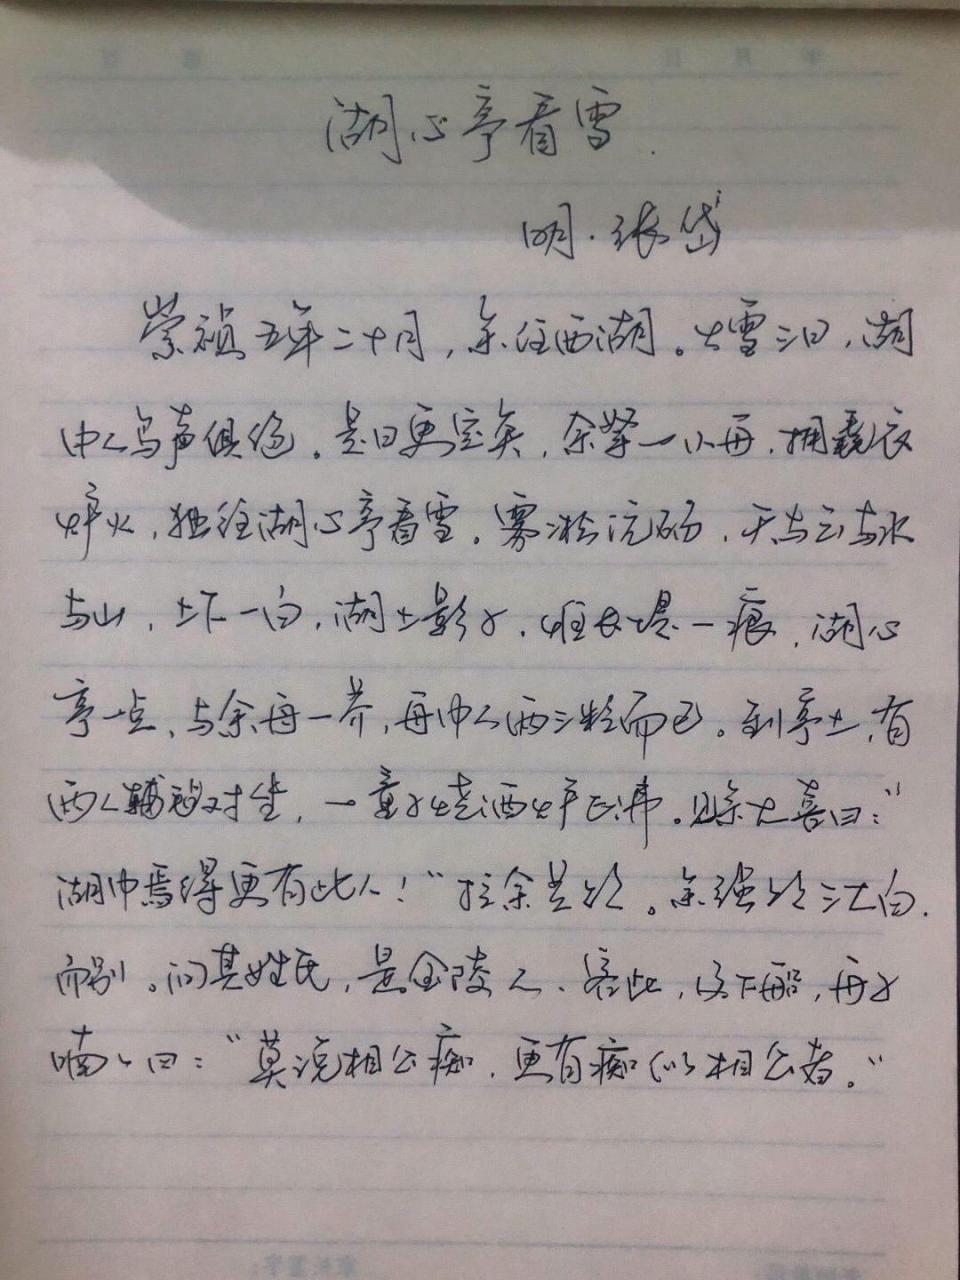 湖心亭看雪.
明·张岱
崇祯五年二十月,余住西湖。大雪三日,湖
中人鸟声俱绝。是日更定矣,余拏一小舟,拥毳衣
炉火,独往湖心亭看雪。雾凇沆砀,天与云与水
与山,上下一白,湖上影子,惟长堤一痕,湖心
亭一点,与余舟一芥,舟中人两三粒而已。到亭上,有
两人铺毡对坐,一童子烧酒炉正沸。见余大喜曰:“
湖中焉得更有此人!”拉余共饮。余强饮三大白.
而别。问其姓氏,是金陵人、客此,及下船,舟子
喃々曰:“莫说相公痴,更有痴似相公者。”